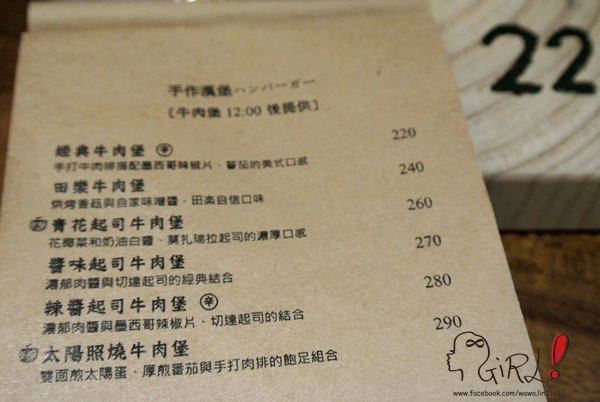 手作漢堡ハンバーガー
〔牛肉堡 12:00 後提供〕
經典牛肉堡 辛 220
手打牛肉排搭配墨西哥辣椒片、蕃茄的美式口感
田樂牛肉堡 240
烘烤香菇與自家味噌醬、田楽自信口味
青花起司牛肉堡 260
花椰菜和奶油白醬、莫扎瑞拉起司的濃厚口感
醬味起司牛肉堡 270
濃郁肉醬與切達起司的經典結合
辣醬起司牛肉堡 辛 280
濃郁肉醬與墨西哥辣椒片、切達起司的結合
太陽照燒牛肉堡 290
雙面煎太陽蛋、厚煎番茄與手打肉排的飽足組合
22
GiRL!
www.facebook.com/wawa.lin1121